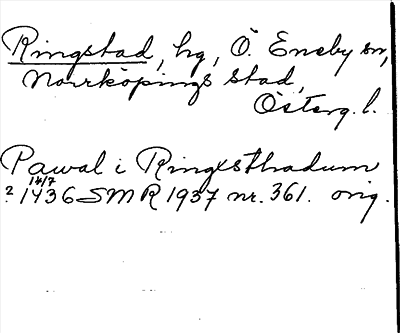 Ringstad, hg, Ö. Eneby sn,
Norrköpings stad,
Österg. l.
Pawal i Ringxsthadum
14/7
? 1436 SMR 1937 nr. 361. orig.